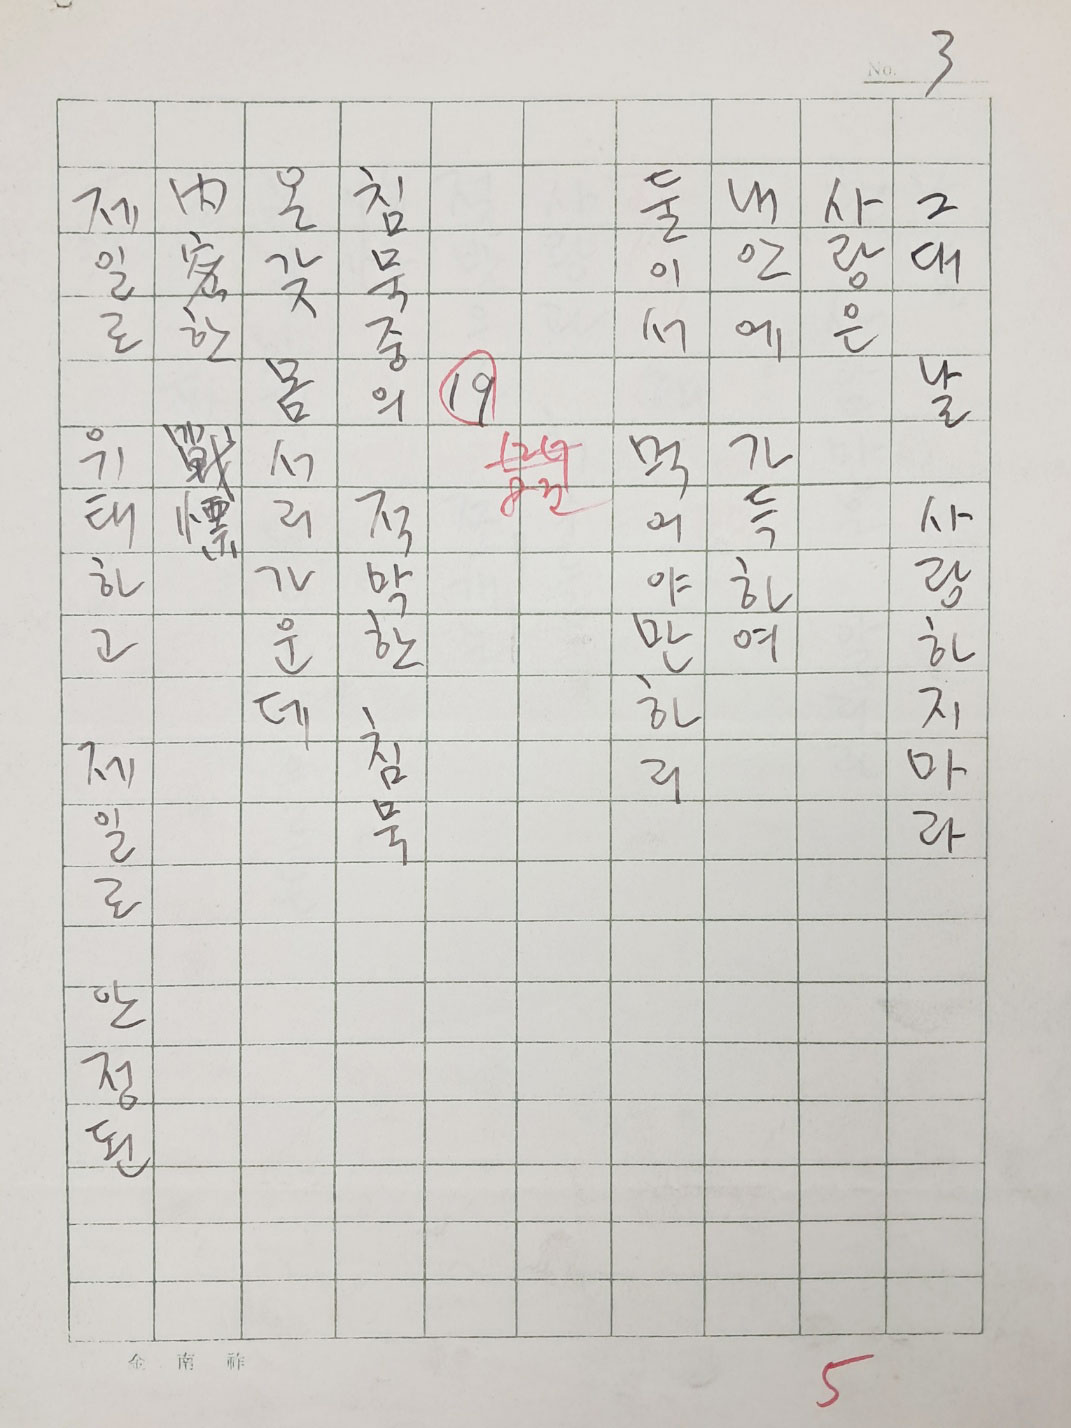 No. 3
그대 날 사랑하지마라
사랑은
내안에 가득하여
둘이서 먹어야만하리
19
침묵중의 적막한 침묵
온갖 몸서리가운데
內密한 戰慄
제일로 위태하고 제일로 안정된
金南祚
5